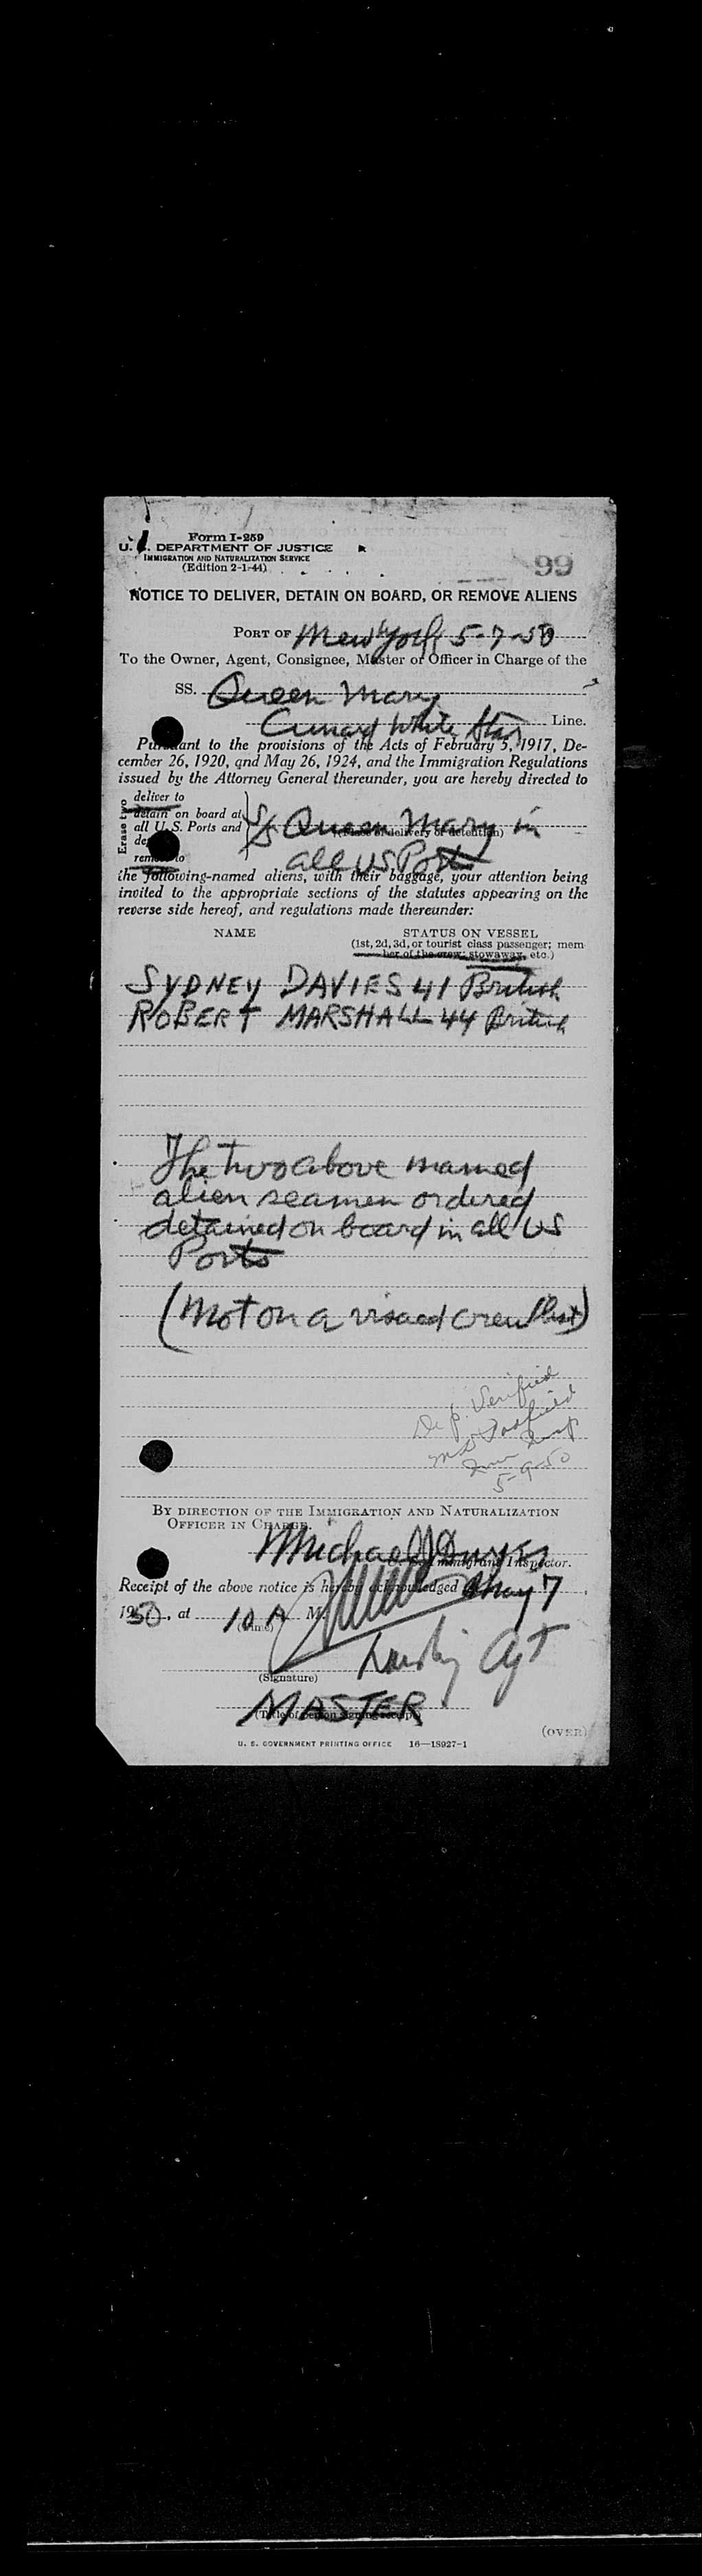 Form I-259
U. S. DEPARTMENT OF JUSTICE
IMMIGRATION AND NATURALIZATION SERVICE
(Edition 2-1-44)
99
NOTICE TO DELIVER, DETAIN ON BOARD, OR REMOVE ALIENS
PORT OF New York 5-7-50
To the Owner, Agent, Consignee, Master or Officer in Charge of the
SS. Queen Mary
Cunard White Star Line.
Pursuant to the provisions of the Acts of February 5, 1917, De-
cember 26, 1920, and May 26, 1924, and the Immigration Regulations
issued by the Attorney General thereunder, you are hereby directed to
Erase two
deliver to
detain on board at
all U.S. Ports and
remove to
S/S Queen Mary in
(Place of delivery or detention)
all US Ports
the following-named aliens, with their baggage, your attention being
invited to the appropriate sections of the statutes appearing on the
reverse side hereof, and regulations made thereunder:
NAME STATUS ON VESSEL
(1st, 2d, 3d, or tourist class passenger; mem
ber of the crew; stowaway, etc.)
SYDNEY DAVIES 41 British
ROBERT MARSHALL 44 British
The two above named
alien seamen ordered
detained on board in all US
Ports
(Not on a visaed crew list)
Dep. Verified
Imm Insp
5-9-50
BY DIRECTION OF THE IMMIGRATION AND NATURALIZATION
OFFICER IN CHARGE.
Michael J
Immigrant Inspector.
Receipt of the above notice is hereby acknowledged May 7
1950, at 10 A M.
(Time)
Agt
(Signature)
MASTER
(Title of person signing receipt)
(OVER)
U. S. GOVERNMENT PRINTING OFFICE 16—18927-1